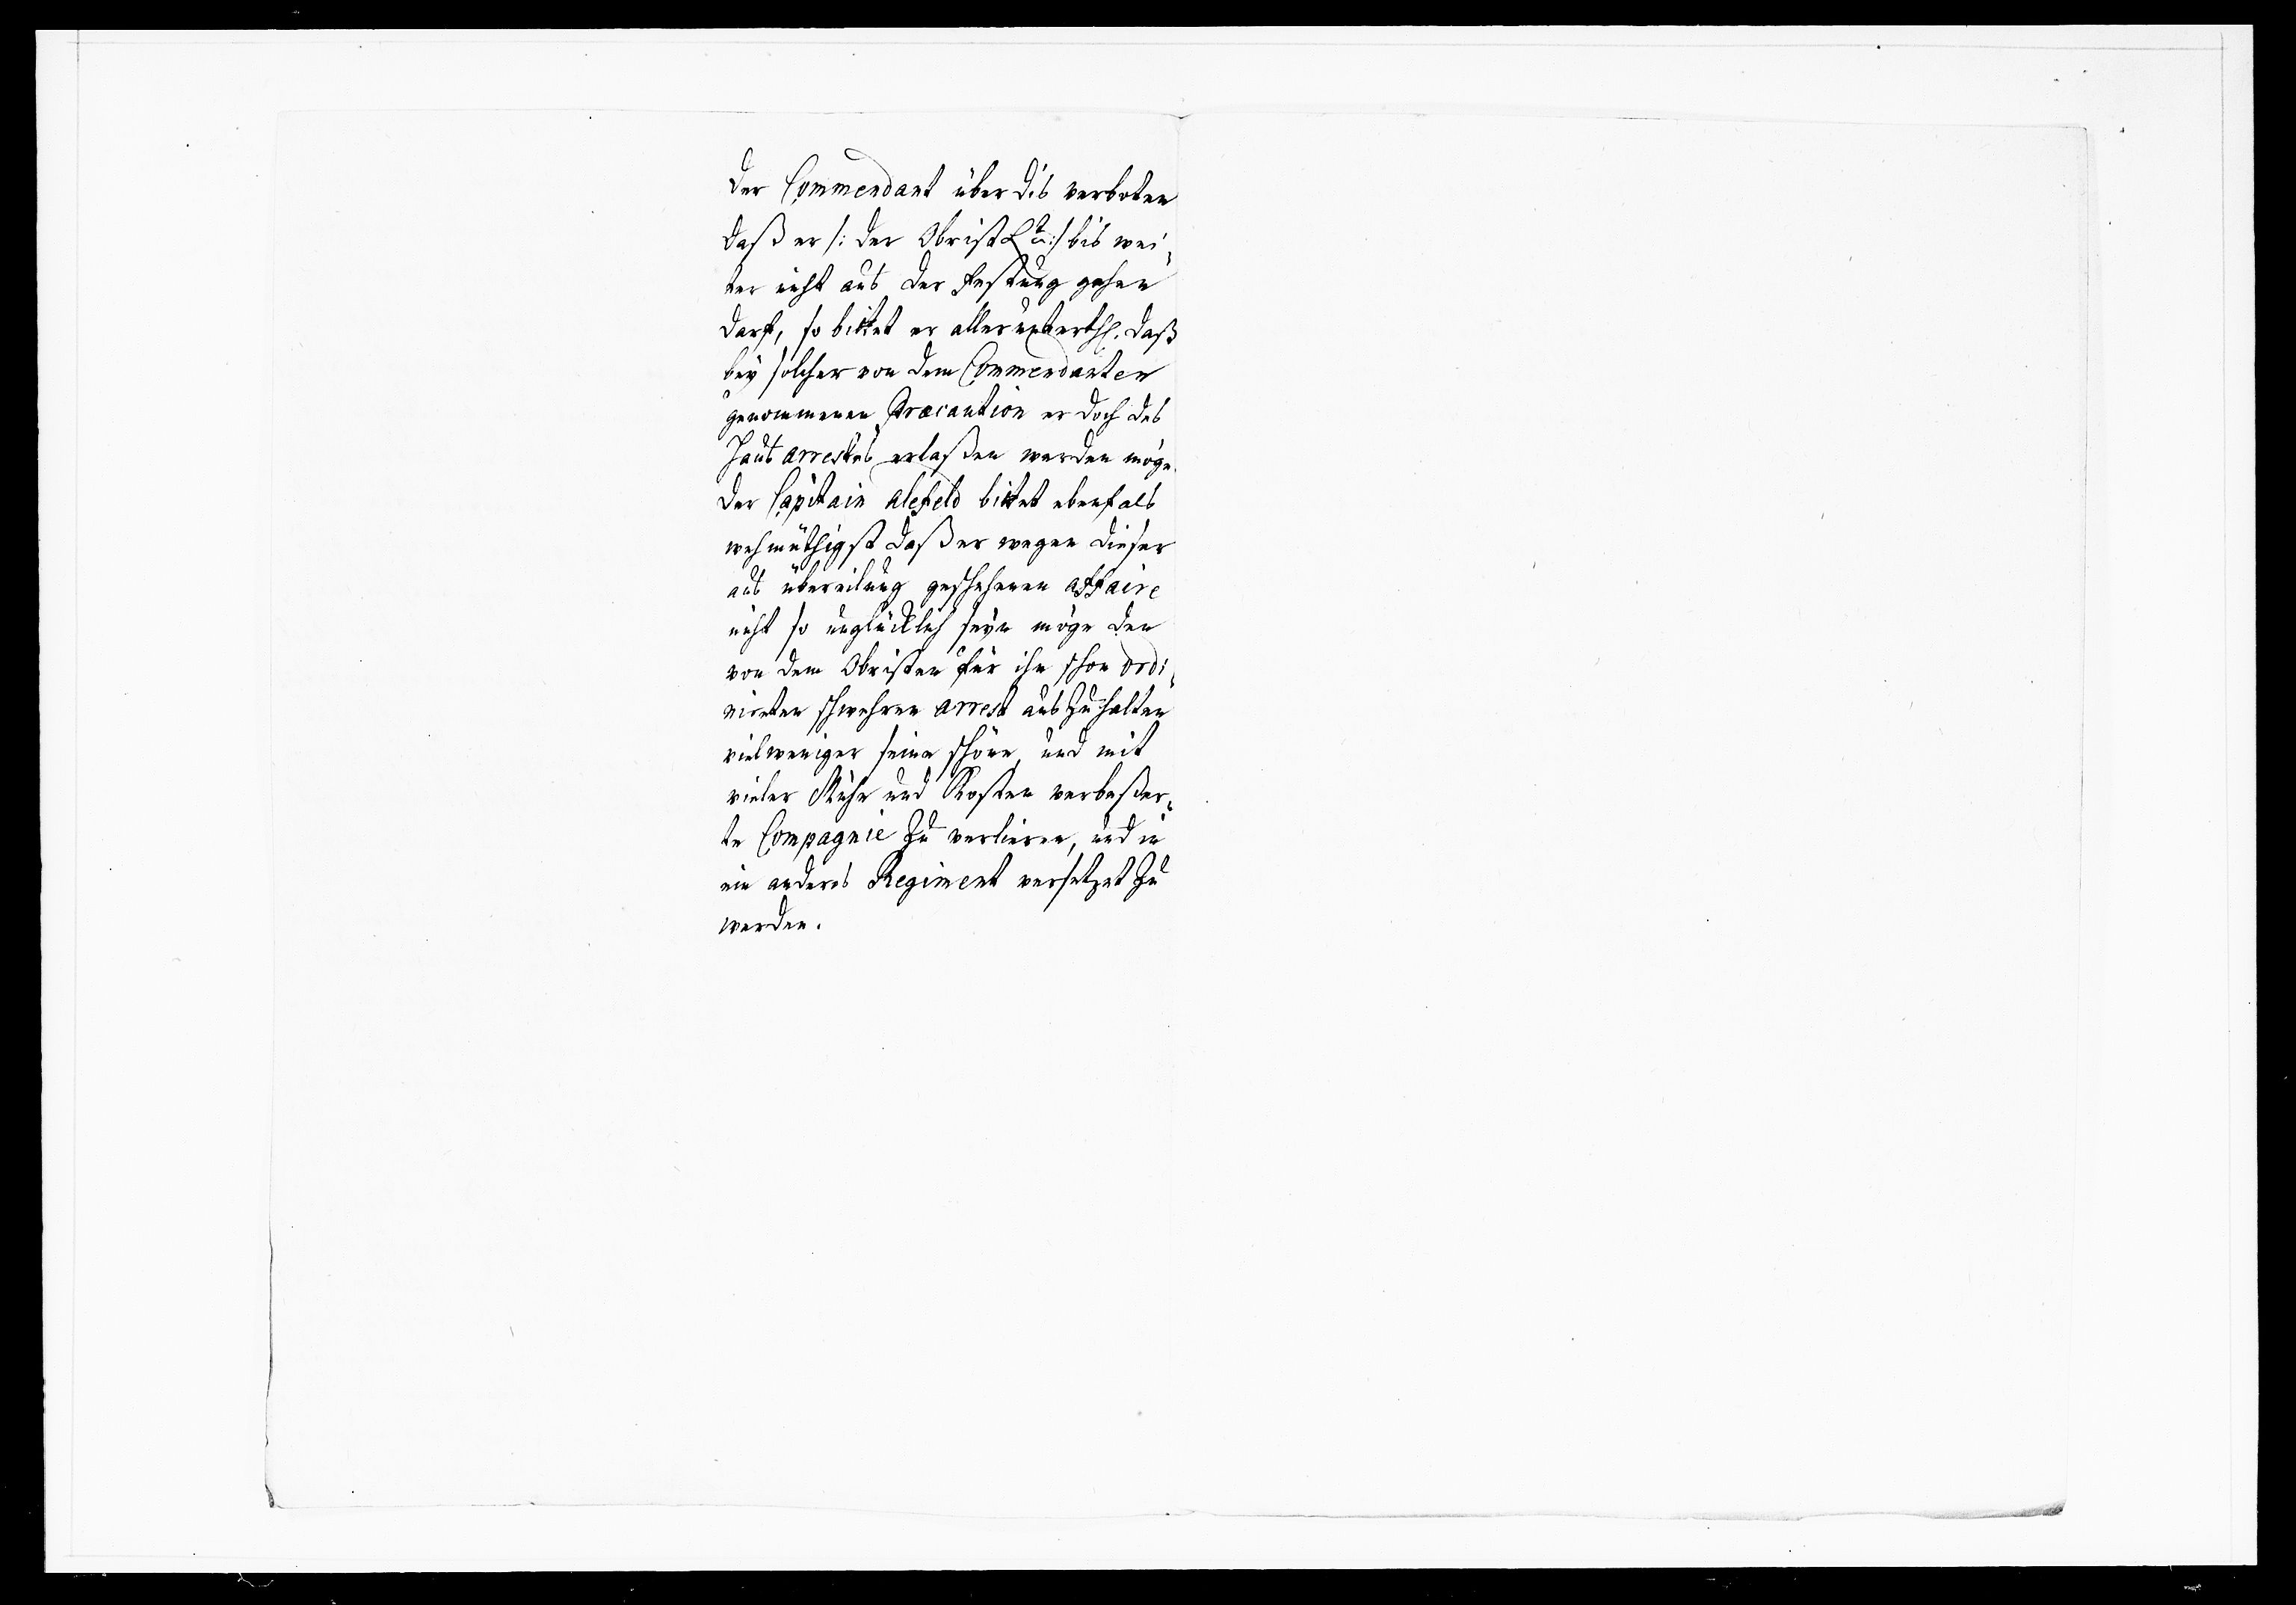 der Commendant über dis verboten
daß er /: der Obrist Lt: :/ bis wei„
ter nicht aus der Festung gehen
darf, so bittet er allerunterth. daß
bey solcher von dem Commendanten
genommenen Præcaution er doch des
Haus arrestes erlaßen werden möge.
Der Capitain Alefeld bittet ebenfals
wehmüthigst daß er wegen dieser
aus übereilung geschehenen affaire
nicht so unglücklich seyn möge den
von dem Obristen für ihn schon ordi„
nirten schwehren arrest aus zu halten
vielweniger seine schöne, und mit
vieler Mühe und Kosten verbeßer„
te Compagnie zu verlieren, und in
ein anderes Regiment versetzet zu
werden.